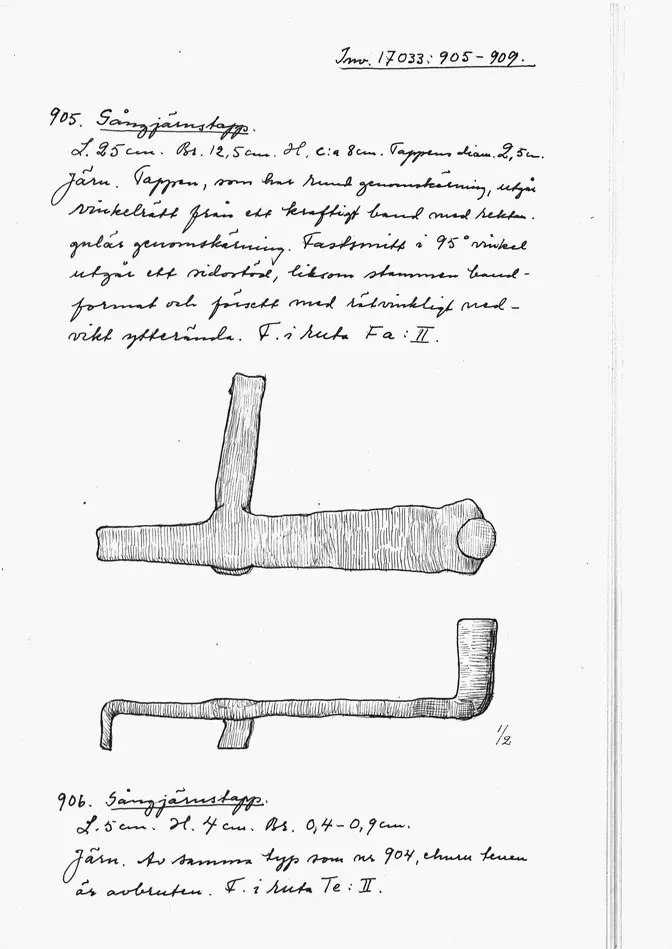 Inv. 17033: 905-909.
905. Gångjärnstapp.
L. 25 cm. Br. 12,5 cm. H. c:a 8 cm. Tappens diam. 2,5 cm.
Järn. Tappen, som har rund genomskärning, utgår
vinkelrätt från ett kraftigt band med rektan-
gulär genomskärning. Fastsmitt i 95° vinkel
utgår ett sidostöd, liksom stammen band-
format och försett med rätvinkligt ned-
vikt ytterända. F. i ruta Fa: II.
1/2
906. Gångjärnstapp.
L. 5 cm. H. 4 cm. Br. 0,4-0,9 cm.
Järn. Av samma typ som nr 904, ehuru tenen
är avbruten. F. i ruta Te: II.